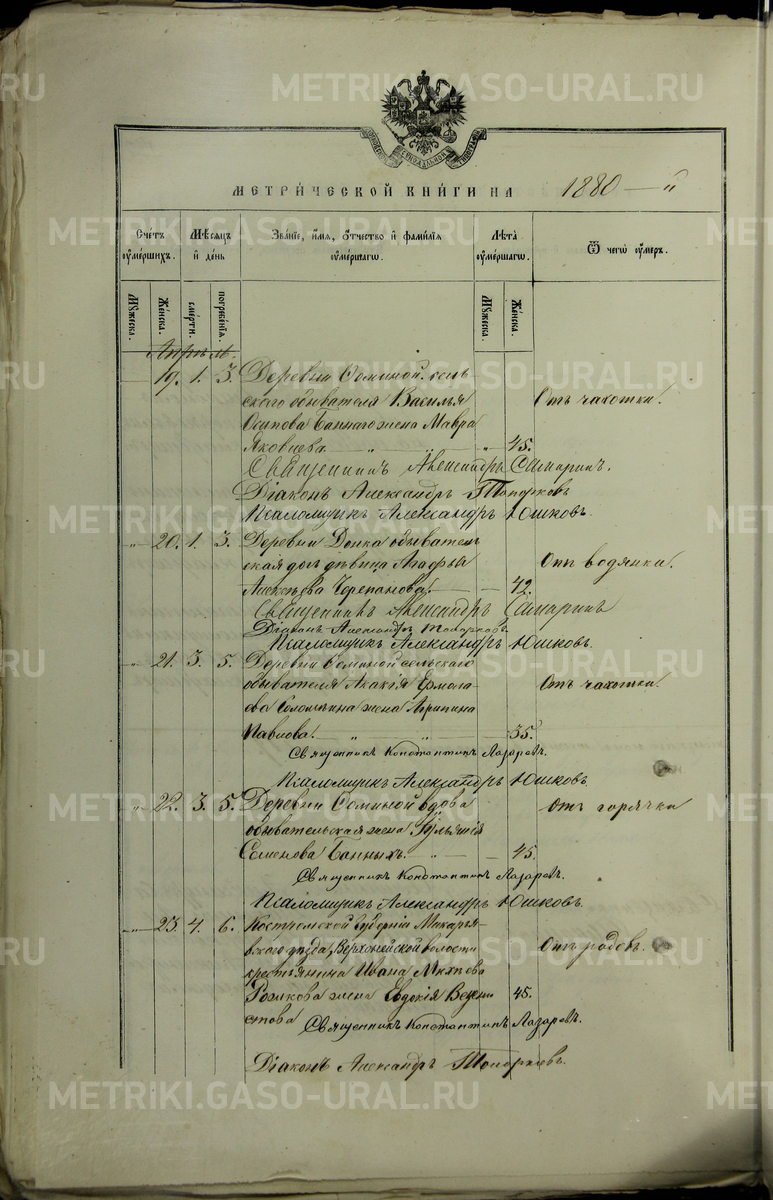 МЕТРИ́ЧЕСКОЙ КНИ́ГИ НА 1880-й
Счетъ оумершихъ.
Мѣсяцъ и день
Званіе, имя, отчество и фамилія оумершагѡ.
Лѣта оумершагѡ.
Ѿ чегѡ оумеръ.
Мужеска.
Женска.
смерти.
погребенія.
Мужеска.
Женска.
Апрѣль.
19. 1. 3. Деревни Соминой сель
скаго обывателя Василья Отъ чахотки.
Осипова Баннаго жена Мавра
Яковлева. 45.
Священникъ Александръ Самаринъ.
Діаконъ Александръ Топорковъ
Псаломщикъ Александръ Юшковъ.
20. 1. 3. Деревни Донка обыватель
ская дочь дѣвица Агафья Отъ водянки.
Алексѣева Черепанова. 42.
Священникъ Александръ Самаринъ
Діаконъ Александръ Топорковъ.
Псаломщикъ Александръ Юшковъ.
21. 3. 5. Деревни Соминой сельскаго
обывателя Акакія Ермола- Отъ чахотки.
ева Соломеина жена Агрипина
Павлова. 35.
Священникъ Константинъ Лазаревъ.
Псаломщикъ Александръ Юшковъ.
22. 3. 5. Деревни Соминой вдова Отъ горячки
обывательская жена Іульянія
Семенова Банныхъ. 45.
Священникъ Константинъ Лазаревъ.
Псаломщикъ Александръ Юшковъ.
23. 4. 6. Костромской губерніи Макарье-
вскаго уѣзда, Верхонейской волости Отъ родовъ.
крестьянина Ивана Михѣева
Рожкова жена Евдокія 45.
Священникъ Константинъ Лазаревъ.
Діаконъ Александръ Топорковъ.
METRIKI.GASO-URAL.RU